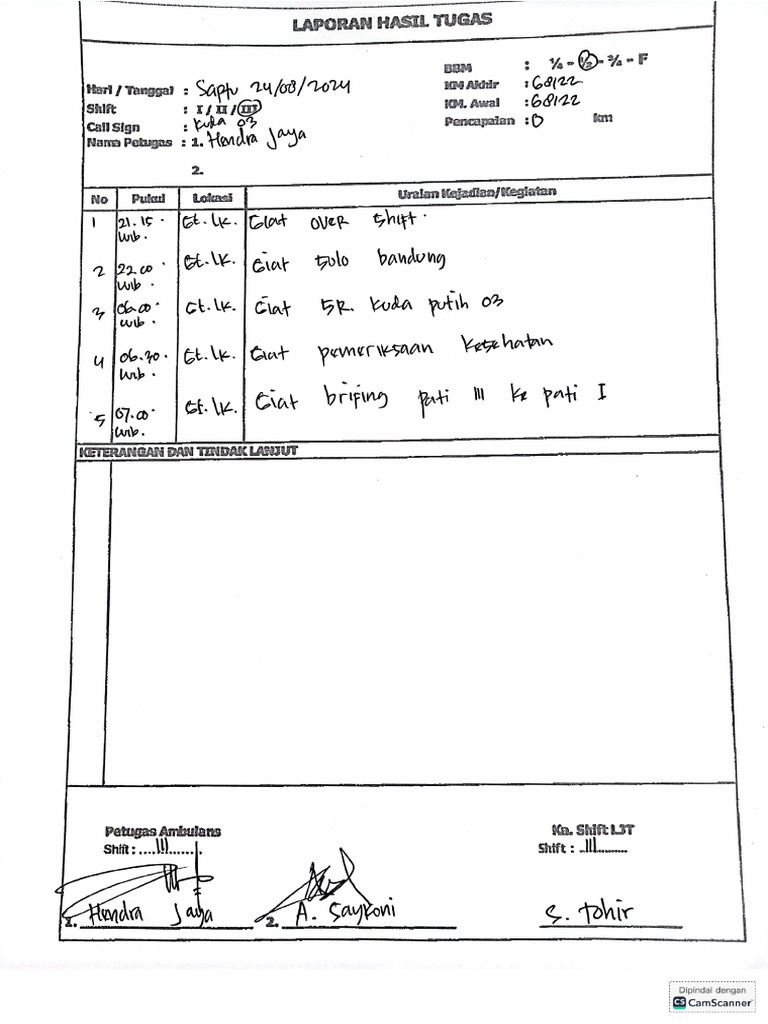 LAPORAN HASIL TUGAS
Hari / Tanggal : Saptu 24/08/2024
Shift : I / II / III
Call Sign : Kuda 03
Nama Petugas : 1. Hendra Jaya
2.
BBM : ¼ - ½ - ¾ - F
KM Akhir : 68122
KM. Awal : 68122
Pencapaian : 0 km
No Pukul Lokasi Uraian Kejadian/Kegiatan
1 21.15. Wib. Gt. lk. Giat over shift.
2 22.00. Wib. Gt. lk. Giat solo bandung
3 06.00. Wib. Gt. lk. Giat SR. Kuda putih 03
4 06.30. Wib. Gt. lk. Giat pemeriksaan kesehatan
5 07.00. Wib. Gt. lk. Giat brifing pati III ke pati I
KETERANGAN DAN TINDAK LANJUT
Petugas Ambulans
Shift : ....III.......
1. Hendra Jaya
2. A. Saykoni
Ka. Shift L3T
Shift : ..III.........
S. Tohir
Dipindai dengan
CS CamScanner